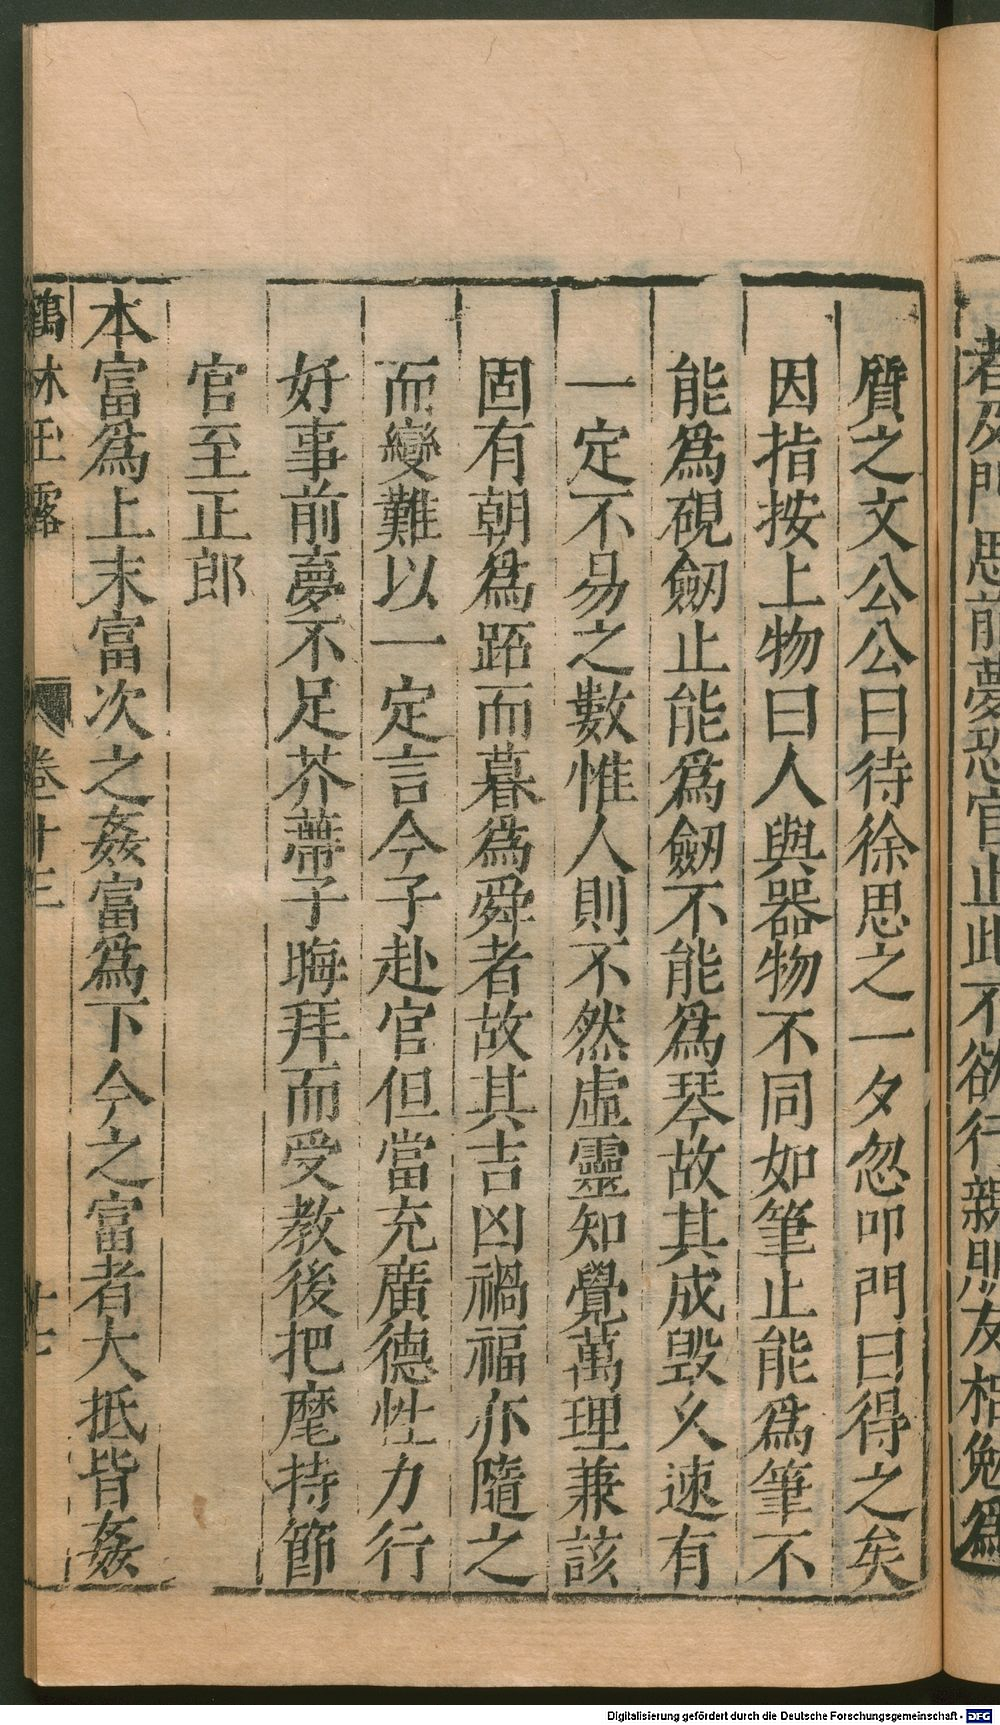 者及門思前夢恐官止此不欲行親朋友相勉爲
質之文公公曰待徐思之一夕忽叩門曰得之矣
因指按上物曰人與器物不同如筆止能爲筆不
能爲硯劒止能爲劒不能爲琴故其成毁久速有
一定不易之數惟人則不然虛靈知覺萬理兼該
固有朝爲跖而暮爲舜者故其吉凶禍福亦隨之
而變難以一定言今子赴官但當充廣德性力行
好事前夢不足芥蔕子晦拜而受教後把麾持節
官至正郎
本富爲上末富次之姦富爲下今之富者大抵皆姦
鶴林玉露 卷十三 十七
Digitalisierung gefördert durch die Deutsche Forschungsgemeinschaft - DFG